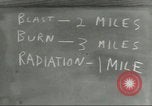 BLAST - 2 MILES
BURN - 3 MILES
RADIATION - 1 MILE